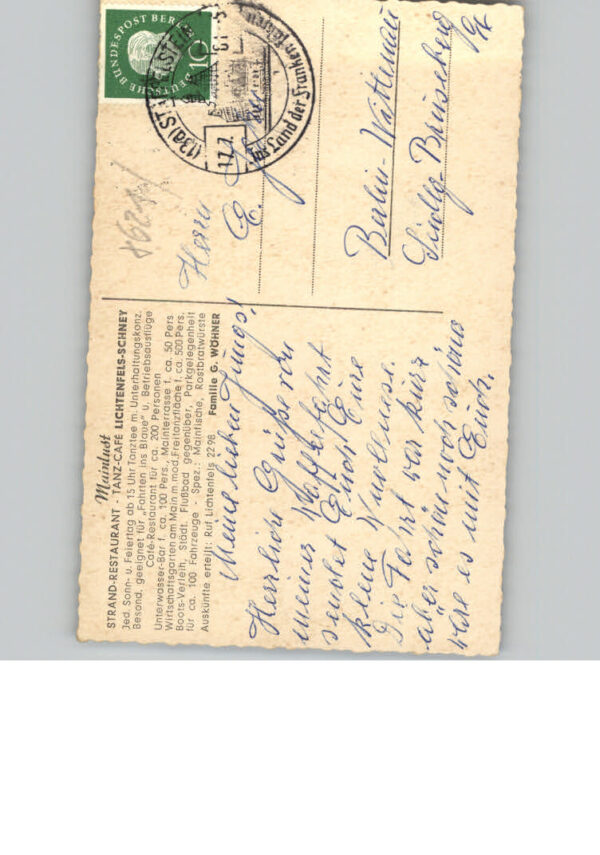 Mainlust
STRAND-RESTAURANT · TANZ-CAFÉ LICHTENFELS-SCHNEY
Jed. Sonn- u. Feiertag ab 15 Uhr Tanztee m. Unterhaltungskonz.
Besond. geeignet für "Fahrten ins Blaue" u. Betriebsausflüge
Café-Restaurant für ca. 200 Personen
Unterwasser-Bar f. ca. 100 Pers., Mainterrasse f. ca. 50 Pers
Wirtschaftsgarten am Main m. mod. Freitanzfläche f. ca. 500 Pers.
Boots-Verleih, Städt. Flußbad gegenüber, Parkgelegenheit
für ca. 100 Fahrzeuge - Spez.: Mainfische, Rostbratwürste
Auskünfte erteilt: Ruf Lichtenfels 2298 Familie G. WÖHNER
Meine lieben Jungs!
Herrliche Grüße von
meiner Kaffeefahrt
sendet Euch Eure
kleine
Die Fahrt war kurz
aber schön noch schöner
wäre es mit Euch.
DEUTSCHE BUNDESPOST BERLIN
10
(13a) STAFFELSTEIN
17.7. 61
Ins Land der Franken fahren
Herrn
E.
Berlin-Wittenau
Siedlg.